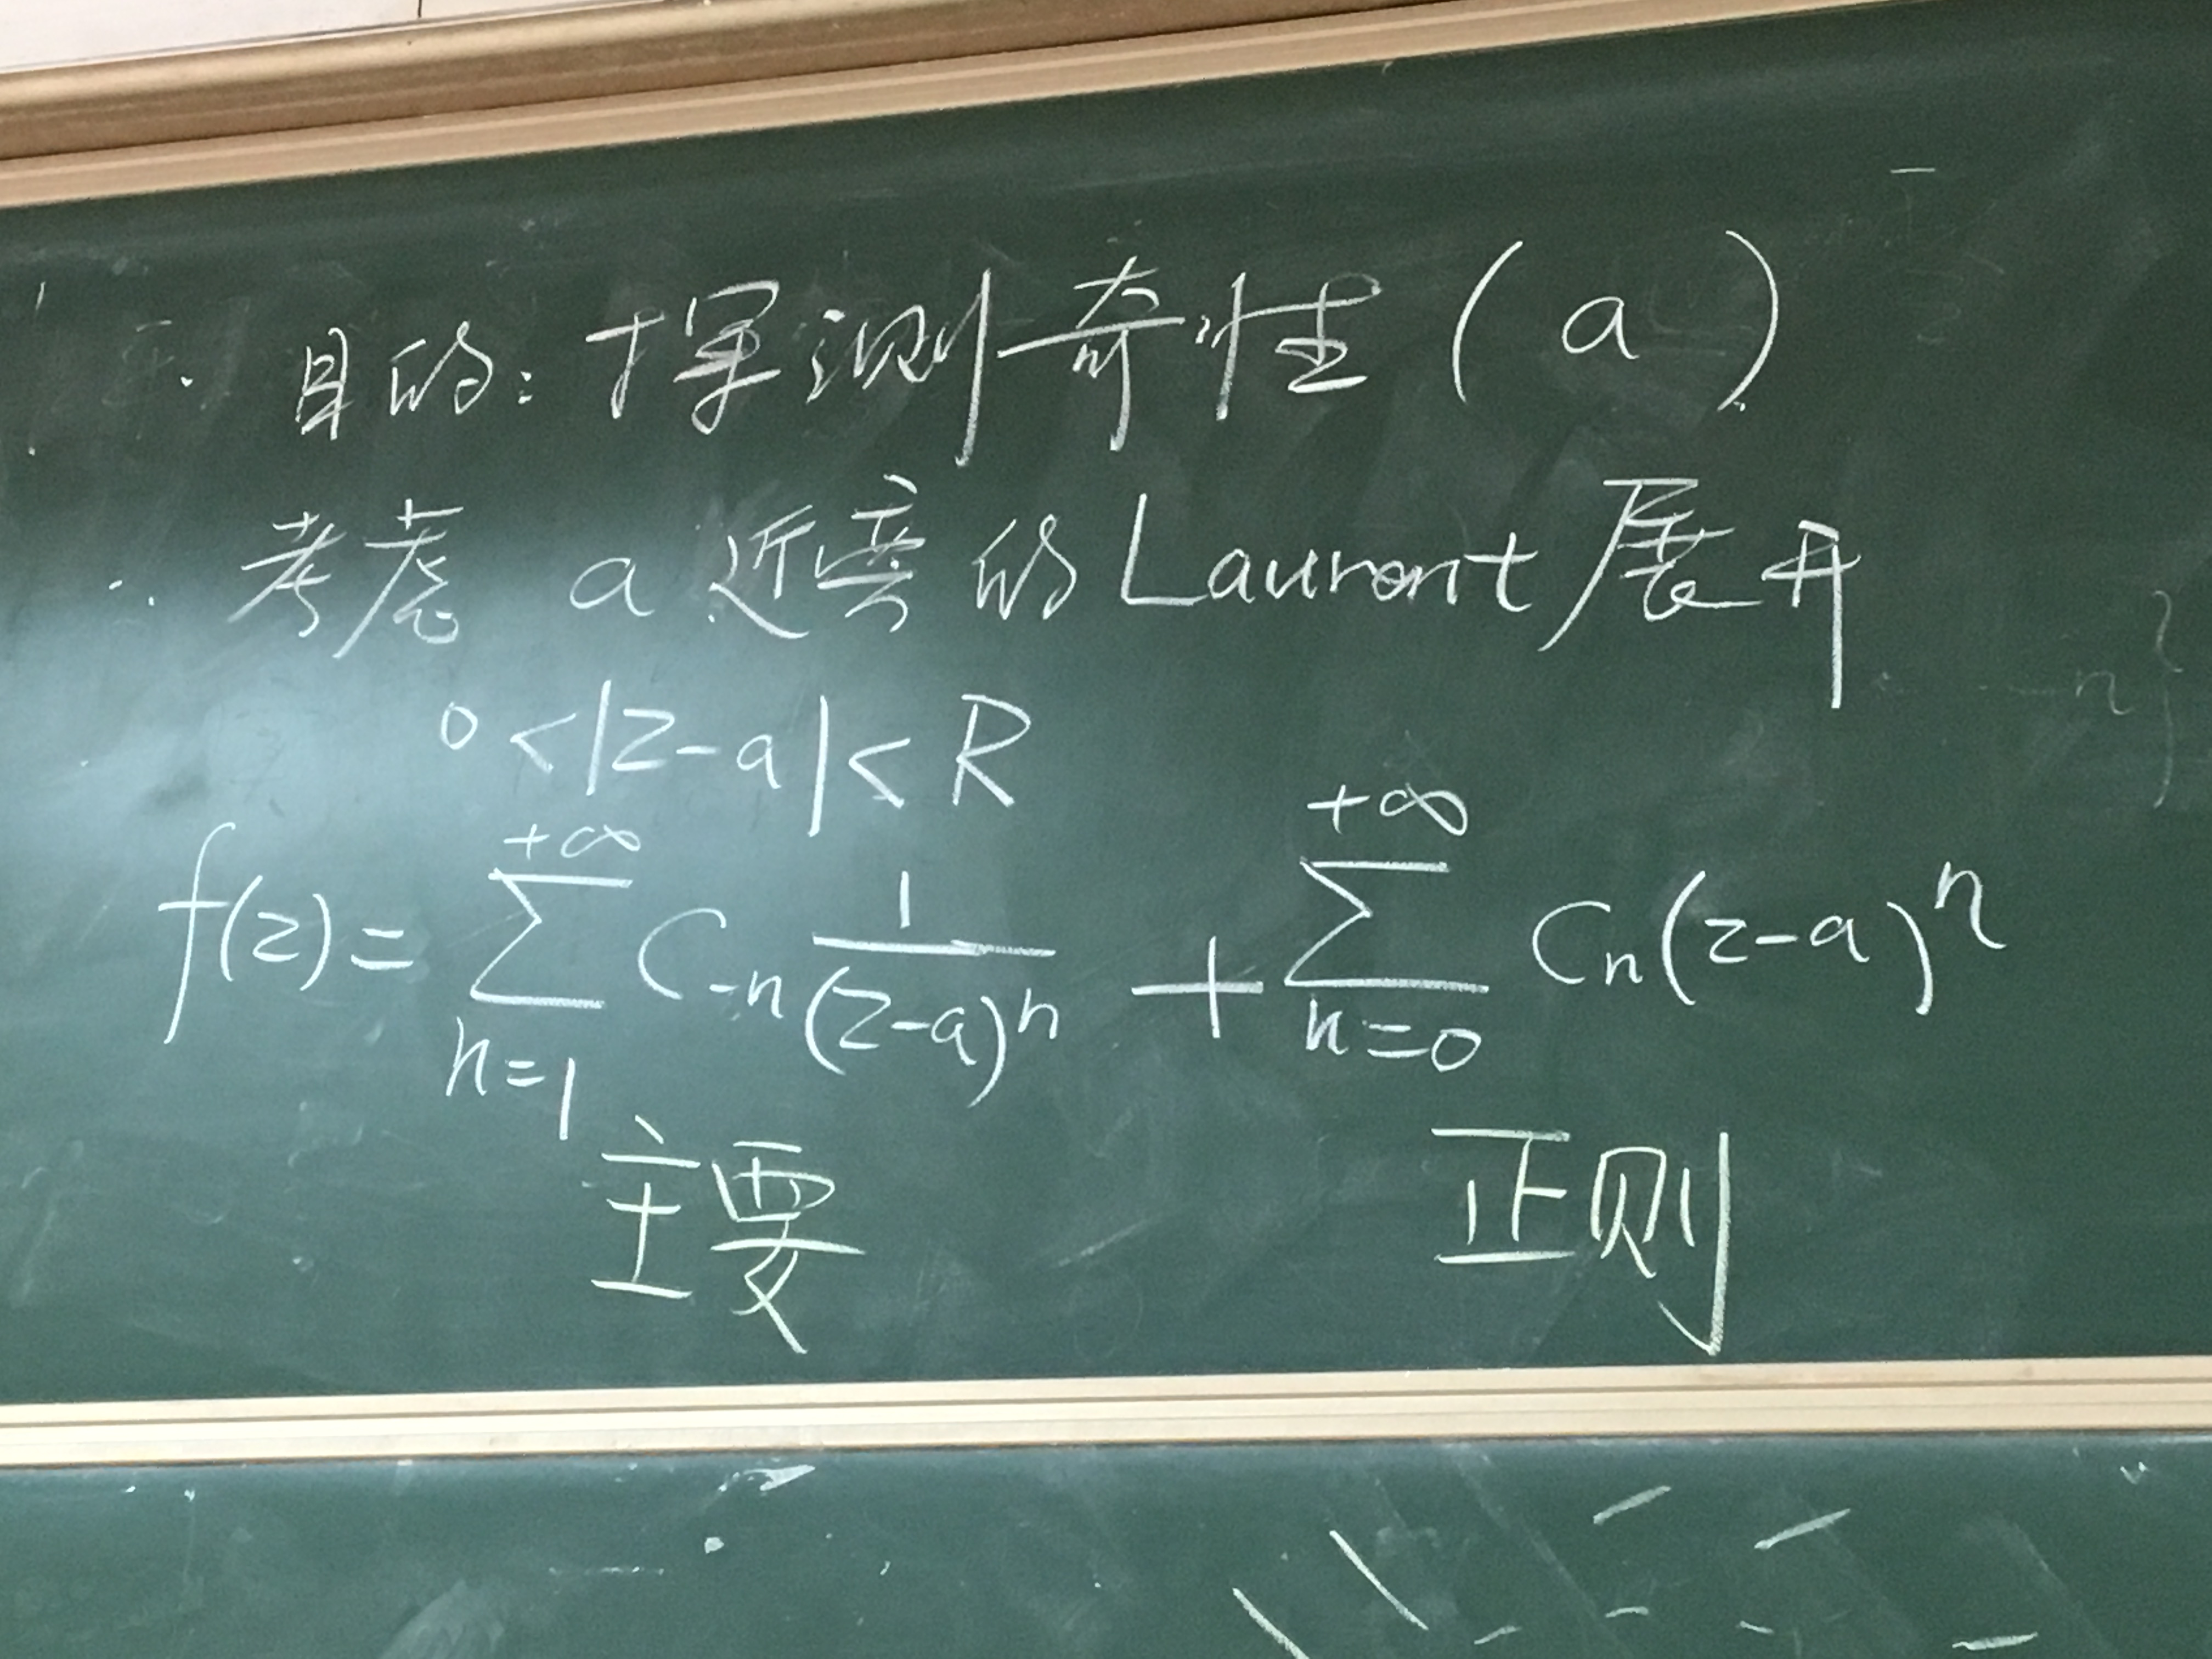 目的：探测奇性(a)
考虑 a 近旁的Laurent展开
0<|z-a|<R
f(z)=\sum_{n=1}^{+∞} C_{-n} \frac{1}{(z-a)^n} + \sum_{n=0}^{+∞} C_n(z-a)^n
主要 正则